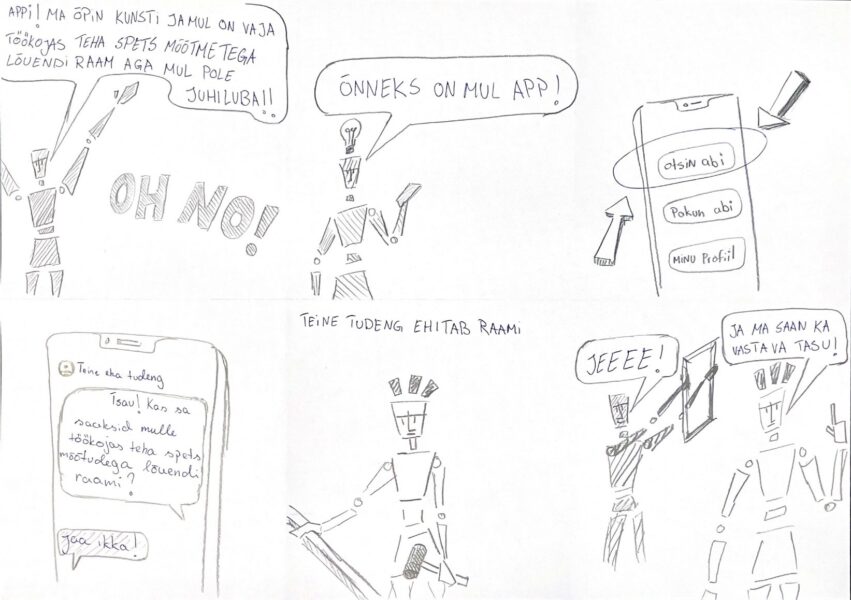 APPI! MA ÕPIN KUNSTI JA MUL ON VAJA
TÖÖKOJAS TEHA SPETS MÕÕTMETEGA
LÕUENDI RAAM AGA MUL POLE
JUHILUBA!!
OH NO!
ÕNNEKS ON MUL APP!
otsin abi
Pakun abi
MINU Profiil
Teine eka tudeng
Tsau! Kas sa
saaksid mulle
töökojas teha spets
mõõtudega lõuendi
raami?
jaa ikka!
TEINE TUDENG EHITAB RAAMI
JEEEE!
JA MA SAAN KA
VASTAVA TASU!